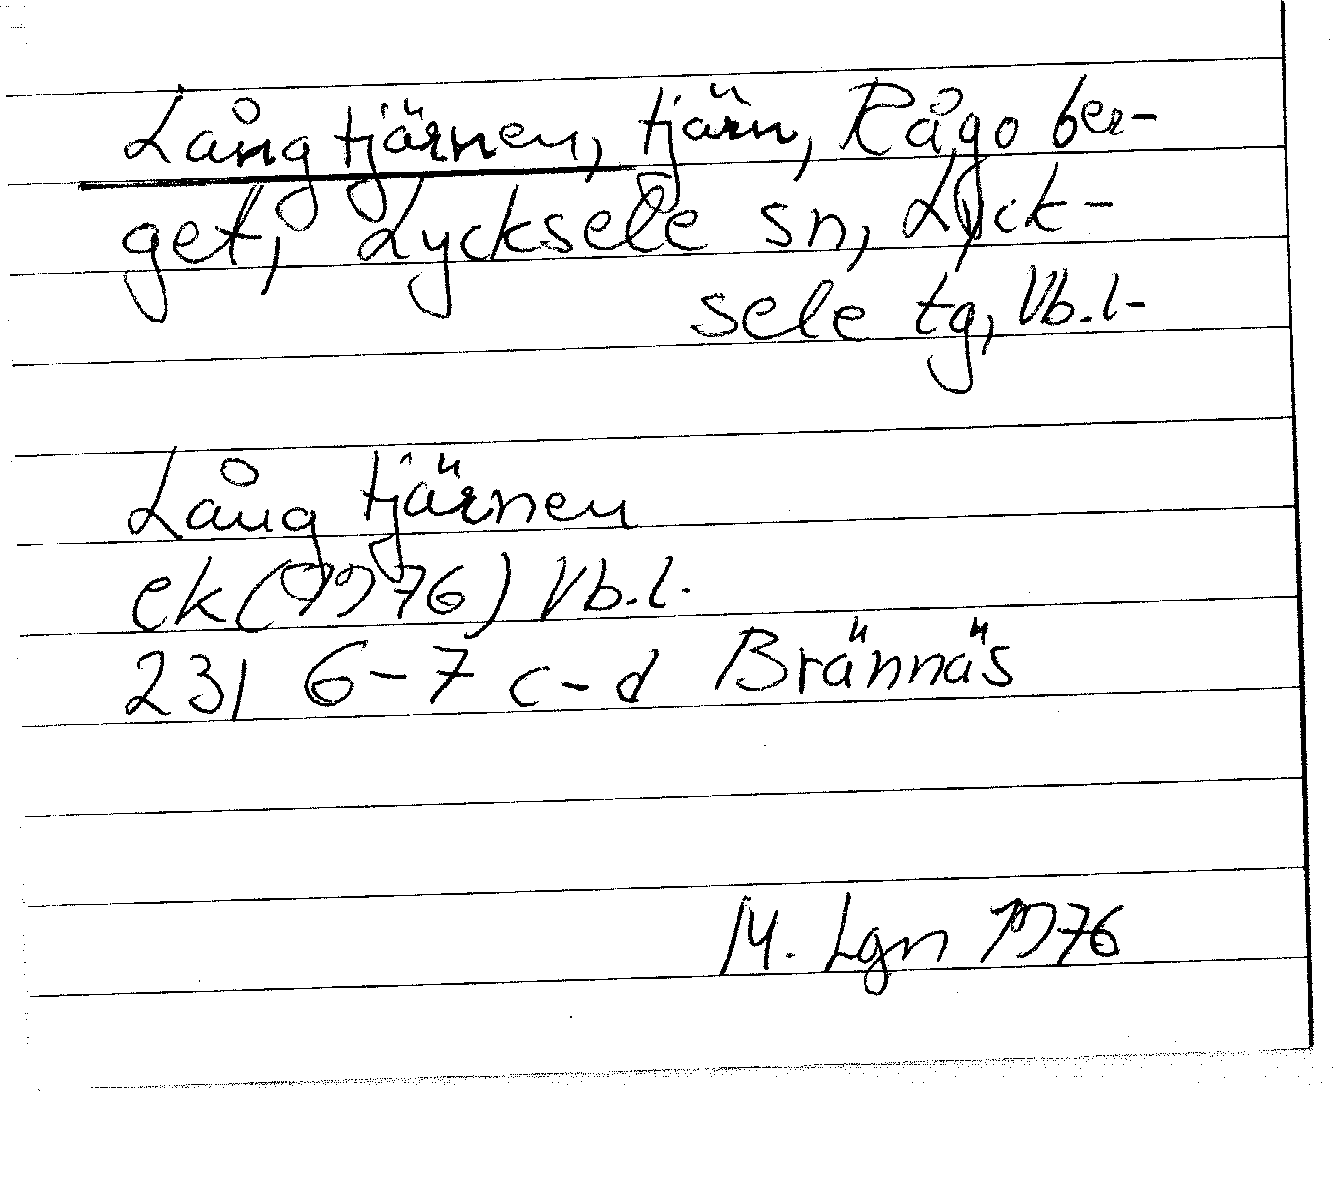 Långtjärnen, tjärn, Rågober-
get, Lycksele sn, Lyck-
sele tg, Vb.l-
Långtjärnen
ek (1976) Vb.l.
231 6-7 c-d Brännäs
M. Lgn 1976